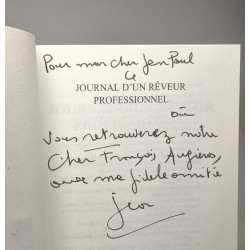 Pour mon cher Jean Paul
ce
JOURNAL D'UN RÊVEUR
PROFESSIONNEL
où
Vous retrouverez notre
cher François Augiéras,
avec ma fidèle amitié
Jean